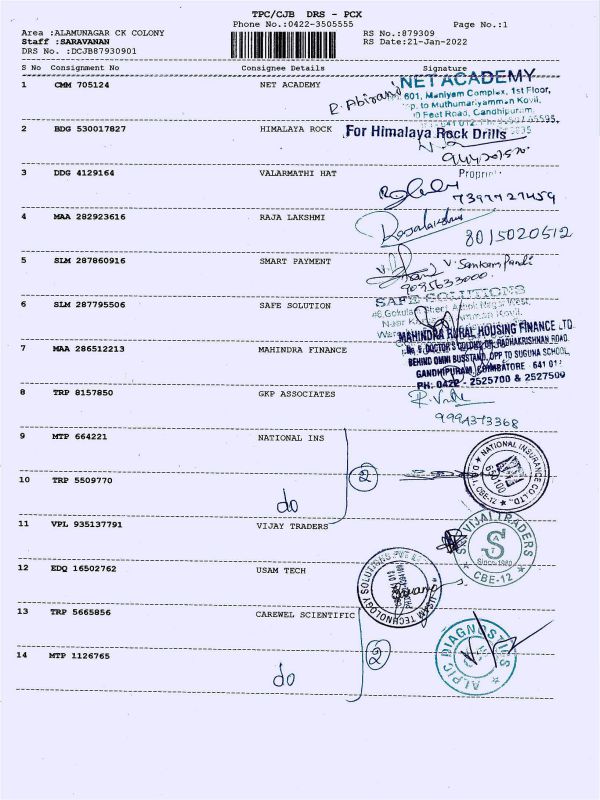 TPC/CJB DRS - PCX
Phone No.:0422-3505555
Page No.:1
Area :ALAMUNAGAR CK COLONY
RS No.:879309
Staff :SARAVANAN
RS Date:21-Jan-2022
DRS No. :DCJB87930901
S No Consignment No Consignee Details Signature
1 CMM 705124 NET ACADEMY
R. Abirami
NET ACADEMY
601, Maniyam Complex, 1st Floor,
Opp. to Muthumariyamman Kovil,
Feet Road, Gandhipuram,
2 BDG 530017827 HIMALAYA ROCK
For Himalaya Rock Drills
3 DDG 4129164 VALARMATHI HAT
7397727459
4 MAA 282923616 RAJA LAKSHMI
Rajalakshmi
8015020512
5 SLM 287860916 SMART PAYMENT
V. Sankar Pandi
9095633000
6 SLM 287795506 SAFE SOLUTION
SAFE SOLUTIONS
7 MAA 286512213 MAHINDRA FINANCE
MAHINDRA RURAL HOUSING FINANCE LTD
RADHAKRISHNAN ROAD
BEHIND OMNI BUSSTAND, OPP TO SUGUNA SCHOOL,
GANDHIPURAM, COIMBATORE - 641 012
PH: 0422 - 2525700 & 2527509
8 TRP 8157850 GKP ASSOCIATES
9994373368
9 MTP 664221 NATIONAL INS
2
NATIONAL INSURANCE CO LTD. CBE-12
10 TRP 5509770
do
11 VPL 935137791 VIJAY TRADERS
SRI VIJAI TRADERS
S
Since 1980
CBE-12
12 EDQ 16502762 USAM TECH
USAM TECHNOLOGY SOLUTIONS PVT L
13 TRP 5665856 CAREWEL SCIENTIFIC
2
ALPIC DIAGNOSTICS
14 MTP 1126765
do